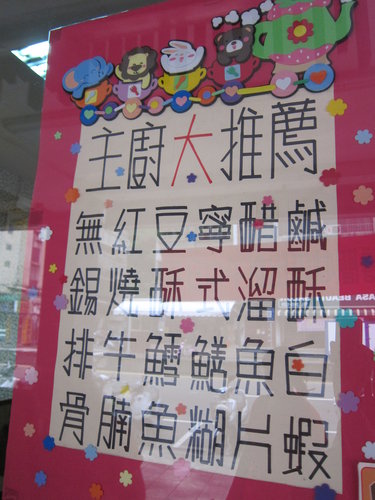 主廚大推薦
鹹酥白蝦
醋溜魚片
寧式鱔糊
豆酥鱈魚
紅燒牛腩
無錫排骨